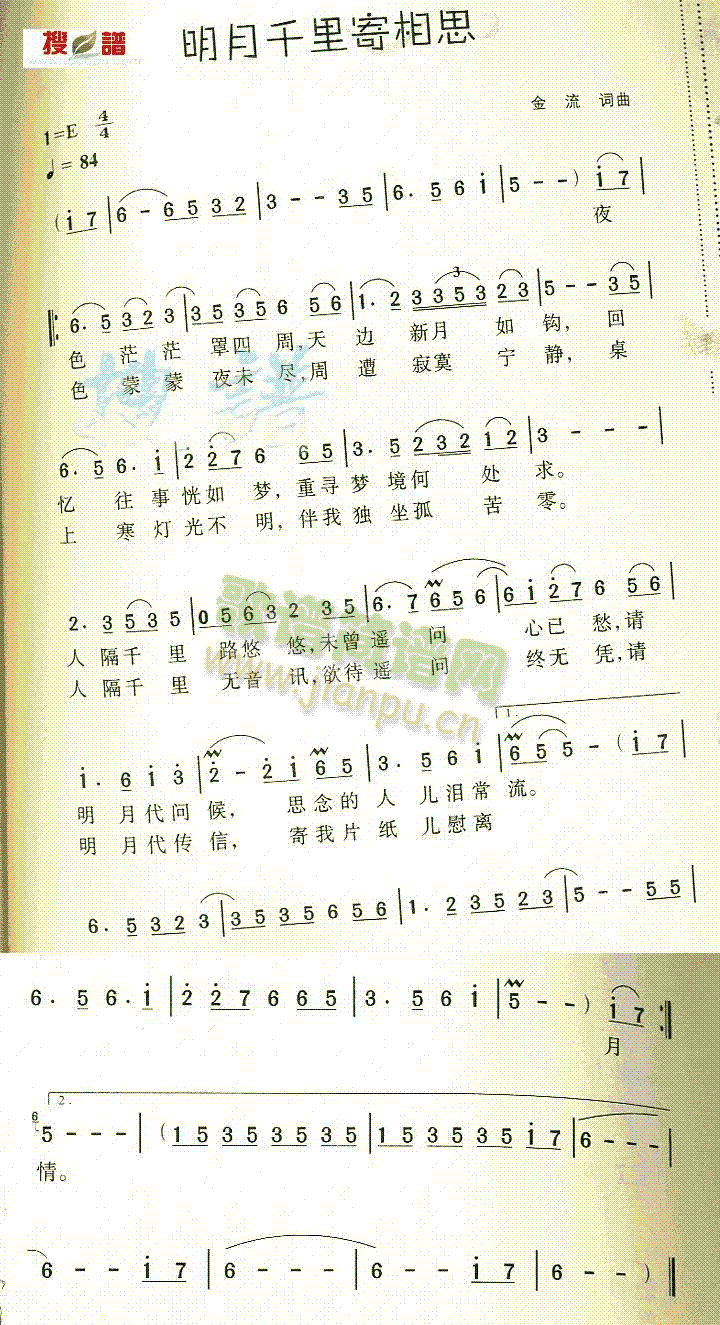 搜 谱
明月千里寄相思
金 流 词曲
1=E 4/4
♩= 84
( i 7 | 6 - 6 5 3 2 | 3 - - 3 5 | 6 . 5 6 i | 5 - - ) i 7 |
夜
6 . 5 3 2 3 | 3 5 3 5 6 5 6 | 1 . 2 3 3 5 3 2 3 | 5 - - 3 5 |
色 茫 茫 罩四 周,天 边 新月 如 钩, 回
色 蒙 蒙 夜未 尽,周 遭 寂寞 宁 静, 桌
6 . 5 6 . i | 2 2 7 6 6 5 | 3 . 5 2 3 2 1 2 | 3 - - -
忆 往 事 恍如 梦, 重寻 梦 境何 处 求。
上 寒 灯 光不 明, 伴我 独 坐孤 苦 零。
2 . 3 5 3 5 | 0 5 6 3 2 3 5 | 6 . 7 6 5 6 | 6 i 2 7 6 5 6 |
人 隔千 里 路悠 悠,未曾 遥 问 心已 愁,请
人 隔千 里 无音 讯,欲待 遥 问 终无 凭,请
1.
i . 6 i 3 | 2 - 2 i 6 5 | 3 . 5 6 i | 6 5 5 - ( i 7 |
明 月代 问 候, 思 念的 人 儿泪 常 流。
明 月代 传 信, 寄 我片 纸 儿慰 离
6 . 5 3 2 3 | 3 5 3 5 6 5 6 | 1 . 2 3 5 2 3 | 5 - - 5 5 |
6 . 5 6 . i | 2 2 7 6 6 5 | 3 . 5 6 i | 5 - - ) i 7 :|
月
2.
6 5 - - - | ( 1 5 3 5 3 5 3 5 | 1 5 3 5 3 5 i 7 | 6 - - - |
情。
6 - - i 7 | 6 - - - | 6 - - i 7 | 6 - - ) ‖
歌谱简谱网
www.jianpu.cn